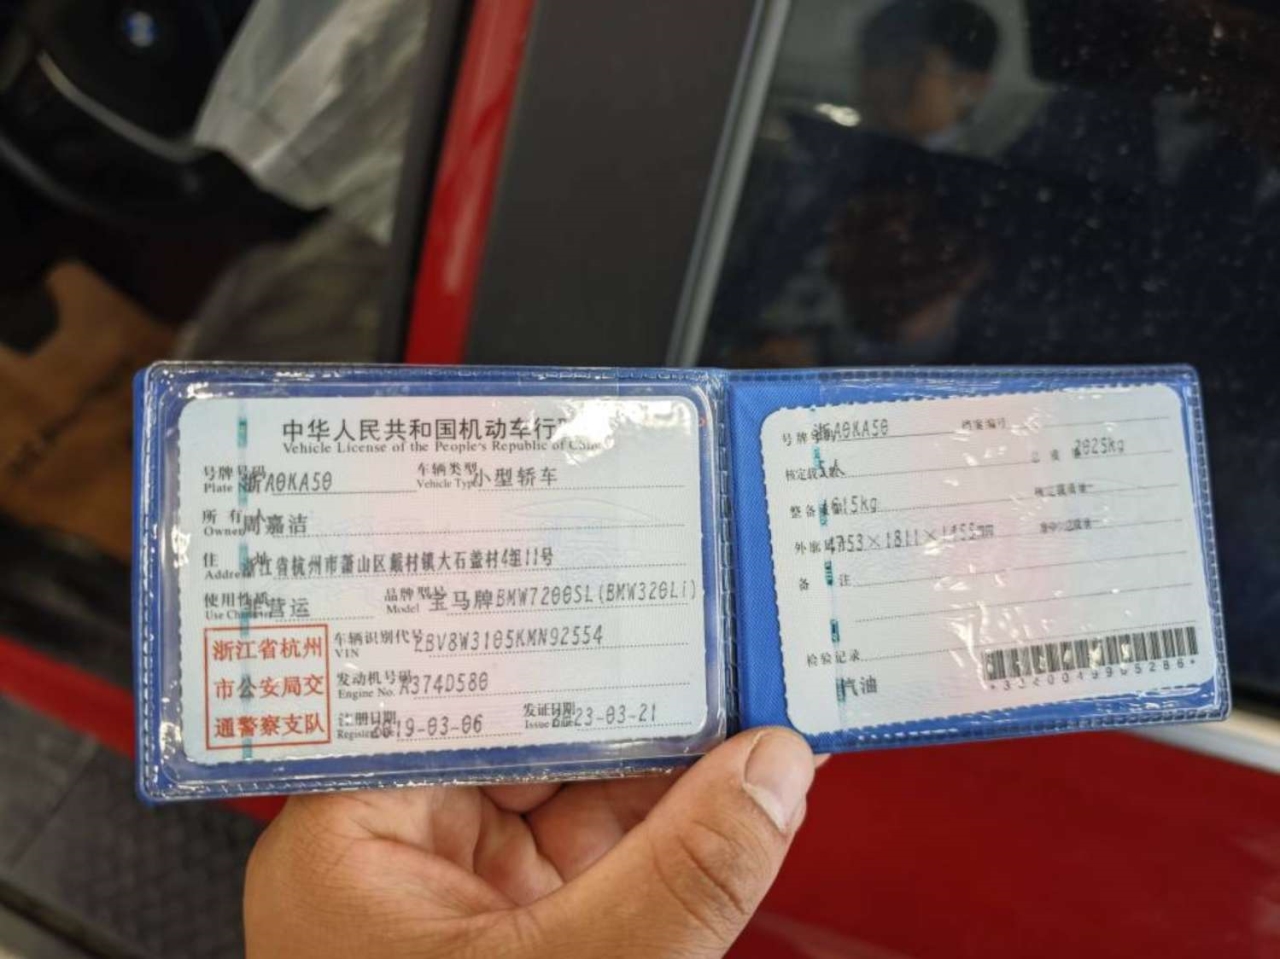 中华人民共和国机动车行
Vehicle License of the People's Republic of China
号牌号码 浙A0KA50 车辆类型 小型轿车
Plate No. Vehicle Type
所有人 周嘉洁
Owner
住址 浙江省杭州市萧山区戴村镇大石盖村4组11号
Address
使用性质 非营运 品牌型号 宝马牌BMW7200SL(BMW320Li)
Use Character Model
浙江省杭州
市公安局交
通警察支队
车辆识别代号 LBV8W3105KMN92554
VIN
发动机号码 A374D580
Engine No.
注册日期 2019-03-06 发证日期 23-03-21
Register Date Issue Date
号牌 浙A0KA50 档案编号
核定载人数 5人 总质量 2025kg
整备质量 1615kg 核定载质量 --
外廓 4753×1811×1455mm
备注
检验记录
汽油
*3320049905286*